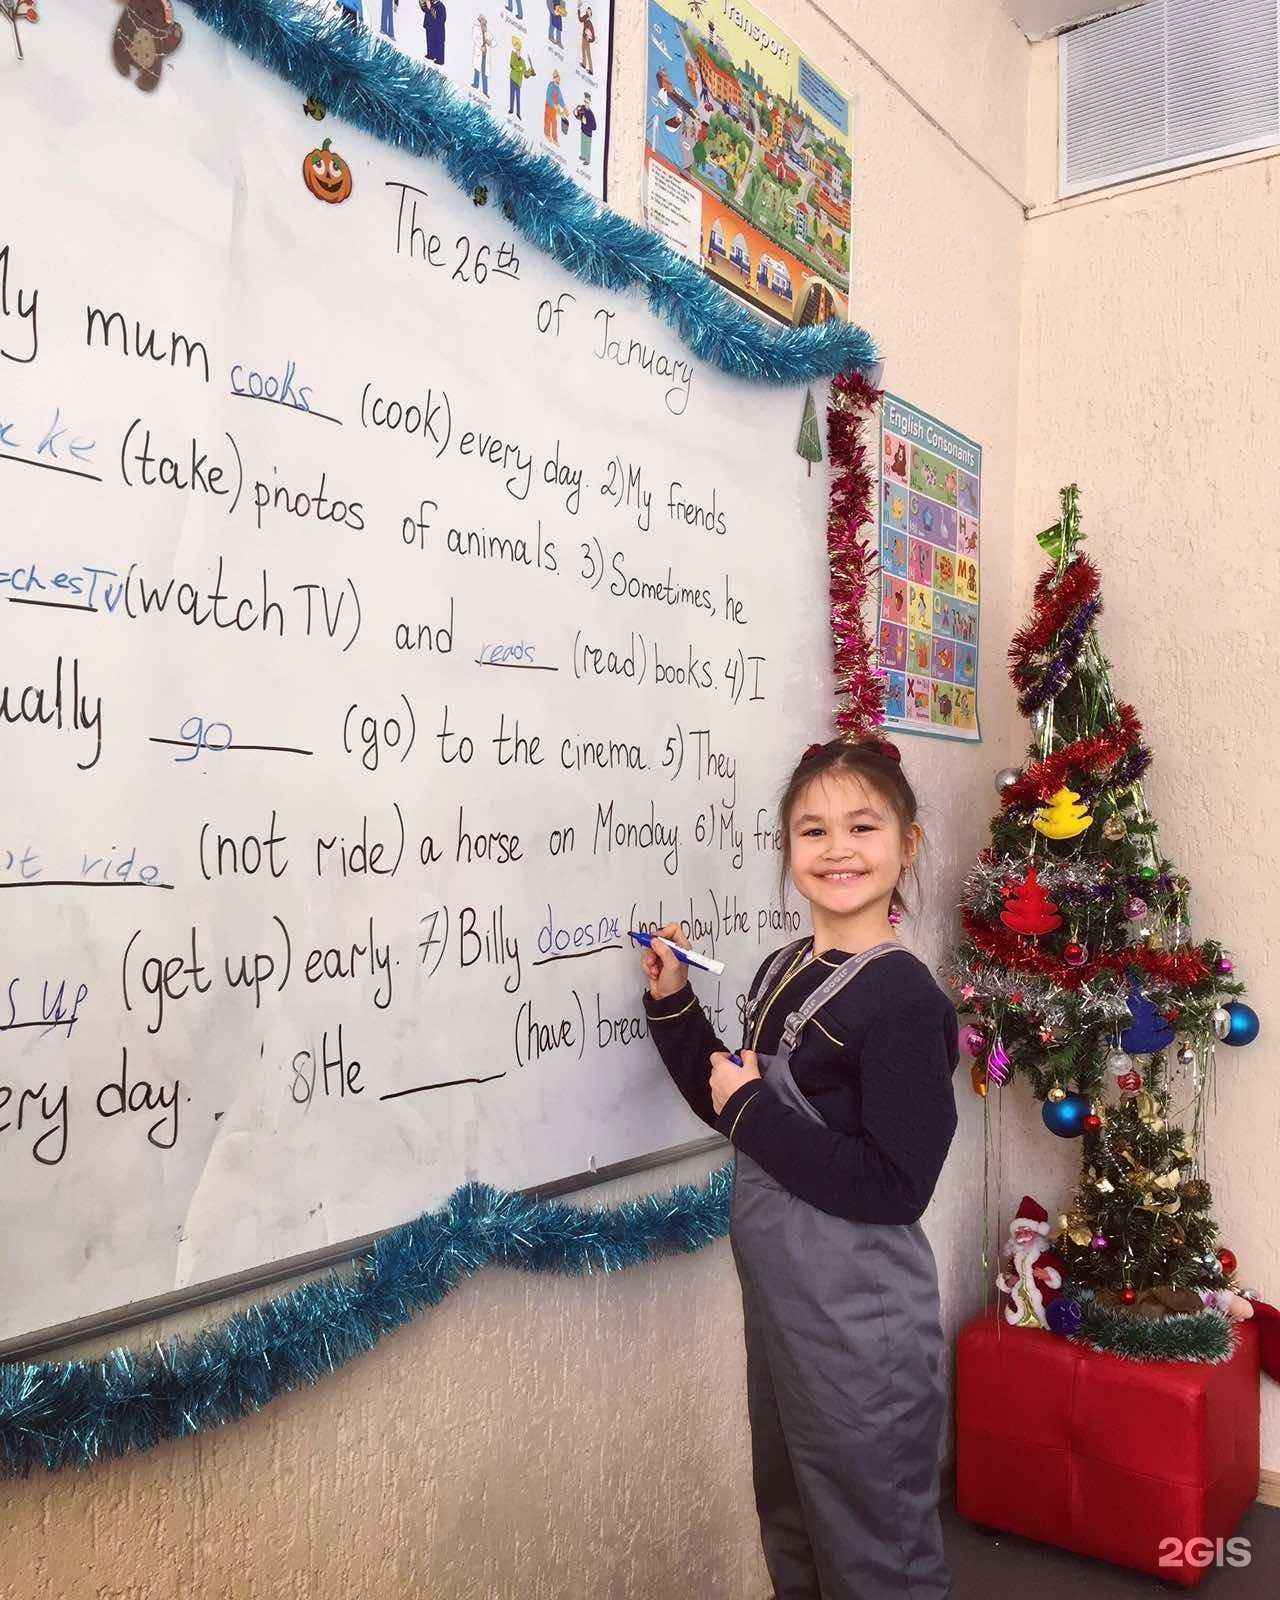 The 26th
of January
My mum cooks (cook) every day. 2) My friends
ke (take) photos of animals. 3) Sometimes, he
ches TV (watch TV) and reads (read) books. 4) I
ually go (go) to the cinema. 5) They
t ride (not ride) a horse on Monday. 6) My frie
s up (get up) early. 7) Billy doesnt (not play) the piano
ery day. 8) He ______ (have) brea at 8
Transport
English Consonants
JICCO
2GIS